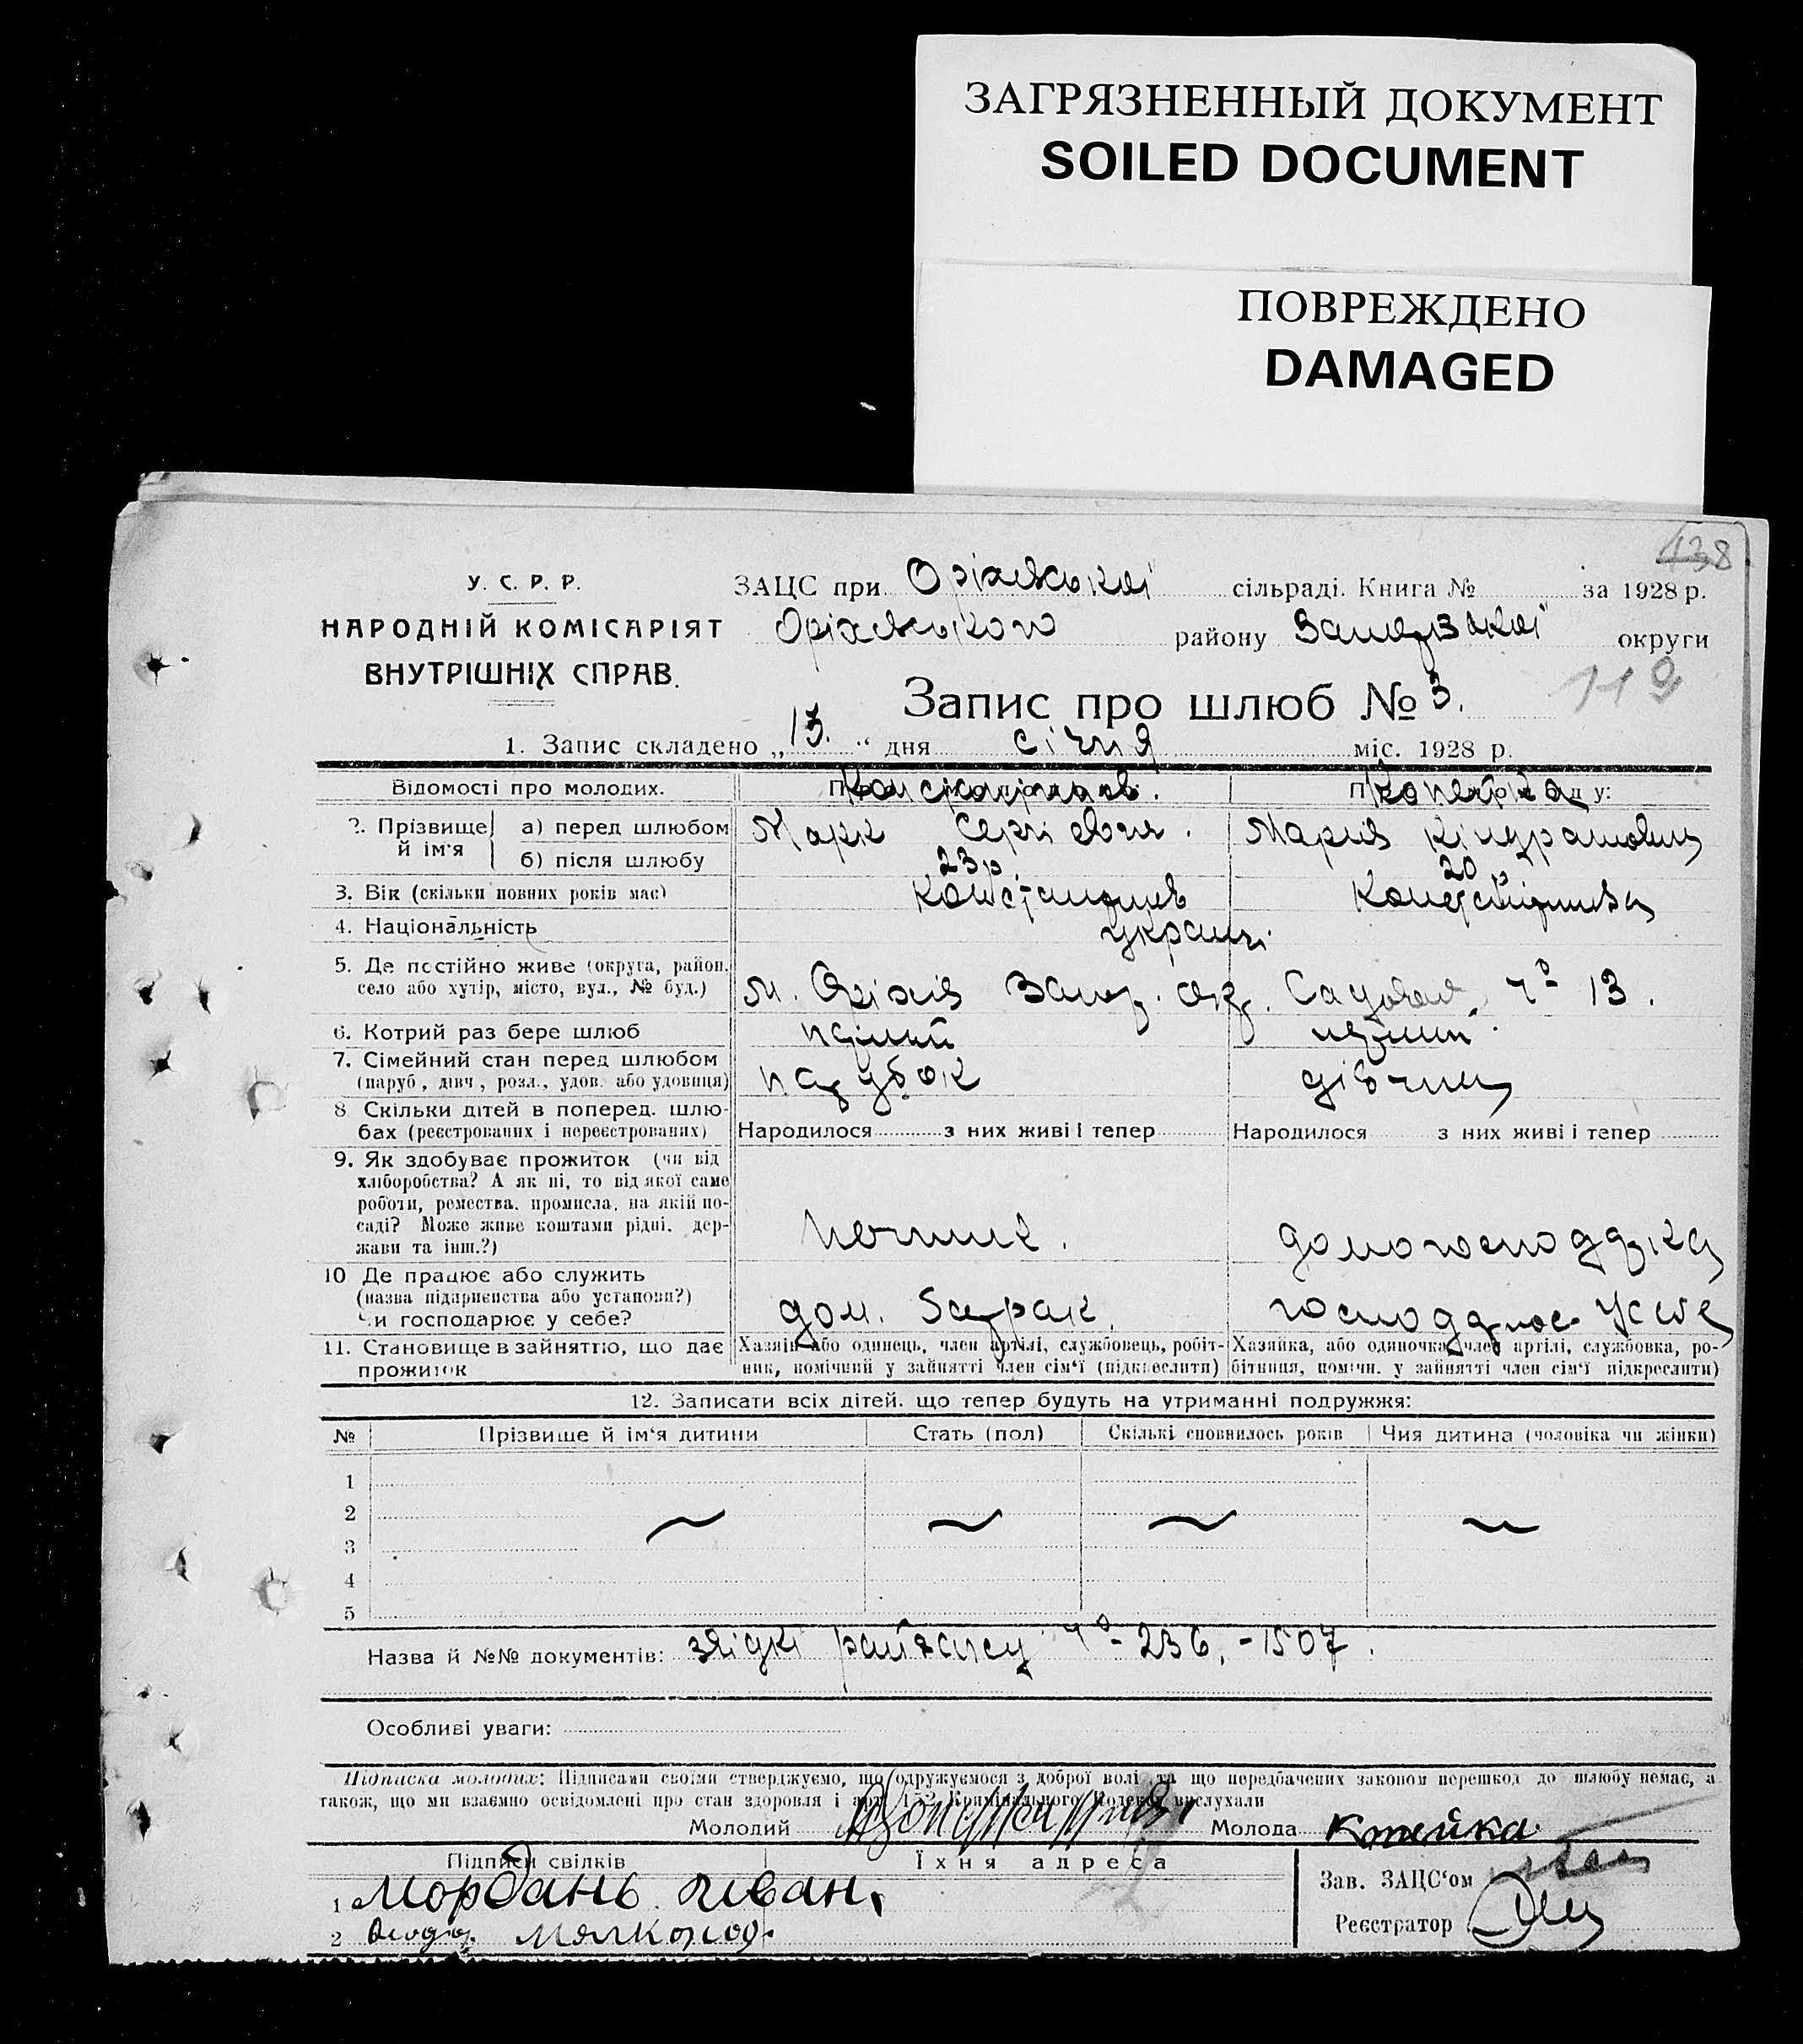 ЗАГРЯЗНЕННЫЙ ДОКУМЕНТ
SOILED DOCUMENT
ПОВРЕЖДЕНО
DAMAGED
138
У. С. Р. Р.
НАРОДНІЙ КОМІСАРІЯТ
ВНУТРІШНІХ СПРАВ.
ЗАЦС при Оріхівській сільраді. Книга № за 1928 р.
Оріхівського району Запорізької округи
119
Запис про шлюб № 3.
1. Запис складено „13.“ дня січня міс. 1928 р.
Відомості про молодих. Константинов. Копейка
2. Прізвище й ім'я
а) перед шлюбом Марк Сергієвич. Марія Кіндратовна
б) після шлюбу 23 р. 20 р.
3. Вік (скільки повних років має) Константинов Константинова
4. Національність україн.
5. Де постійно живе (округа, район, село або хутір, місто, вул., № буд.) м. Оріхів Запор. окр. Садовая № 13.
6. Котрий раз бере шлюб перший перший
7. Сімейний стан перед шлюбом (паруб, дівч, розл., удов. або удовиця) парубок дівчина
8 Скільки дітей в поперед. шлюбах (реєстрованих і нереєстрованих) Народилося з них живі і тепер Народилося з них живі і тепер
9. Як здобуває прожиток (чи від
хліборобства? А як ні, то від якої саме
роботи, ремества, промисла, на якій по-
саді? Може живе коштами рідні, дер-
жави та інш.?) печник. домогосподарка
10 Де працює або служить
(назва підприєнства або установи?)
Чи господарює у себе? дом. господарює у себе
11. Становище в зайняттю, що дає прожиток
Хазяїн або одинець, член артілі, службовець, робіт-
ник, помічний у зайнятті член сім'ї (підкреслити)
Хазяйка, або одиночка, член артілі, службовка, ро-
бітниця, помічн. у зайнятті член сім'ї підкреслити)
12. Записати всіх дітей, що тепер будуть на утриманні подружжя:
№ Прізвище й ім'я дитини Стать (пол) Скількі сповнилось років Чия дитина (чоловіка чи жінки)
1
2
3
4
5
Назва й №№ документів: № 236, - 1507.
Особливі уваги:
Підписка молодих: Підписами своїми стверджуємо, що одружуємося з доброї волі та що передбачених законом перешкод до шлюбу немає, а
також, що ми взаємно освідомлені про стан здоровля і арт. Кримінального Кодексу вислухали
Молодий Константинов Молода Копейка
Підписи свілків Їхня адреса
Зав. ЗАЦС'ом
1 Мордань Иван.
Реєстратор
2